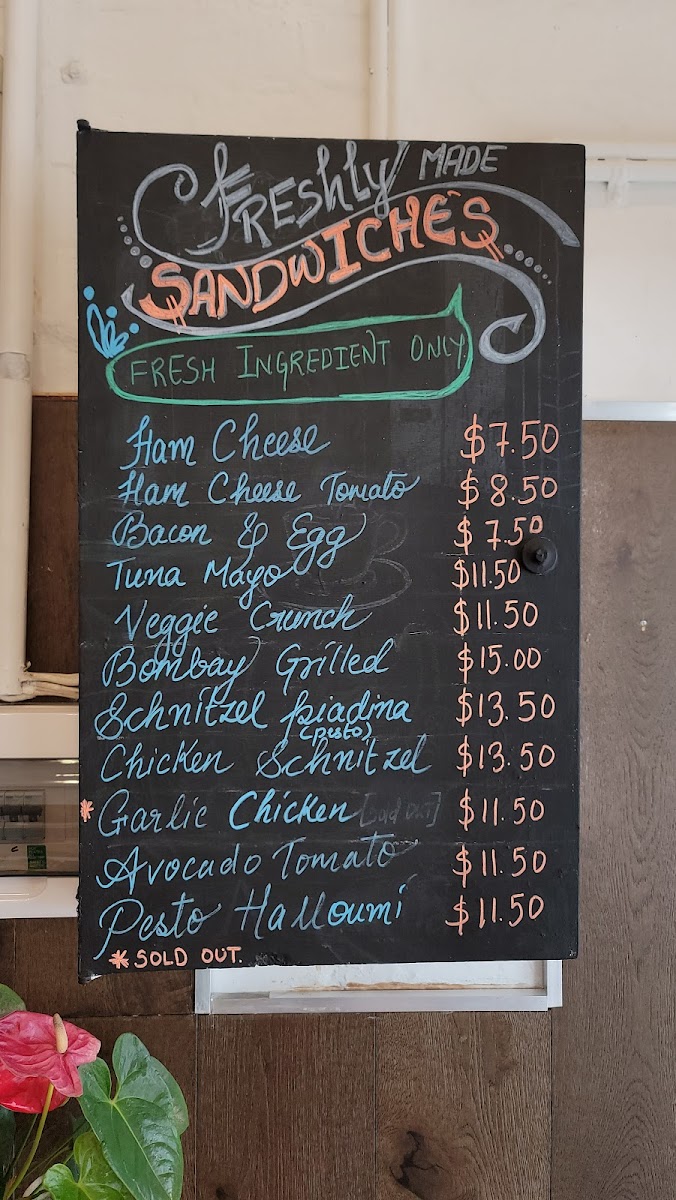 FRESHLY MADE
SANDWICHES
FRESH INGREDIENT ONLY.
Ham Cheese $7.50
Ham Cheese Tomato $8.50
Bacon & Egg $7.50
Tuna Mayo $11.50
Veggie Crunch $11.50
Bombay Grilled $15.00
Schnitzel piadina $13.50
(pesto)
Chicken Schnitzel $13.50
* Garlic Chicken [Sold OUT] $11.50
Avocado Tomato $11.50
Pesto Halloumi $11.50
* SOLD OUT.